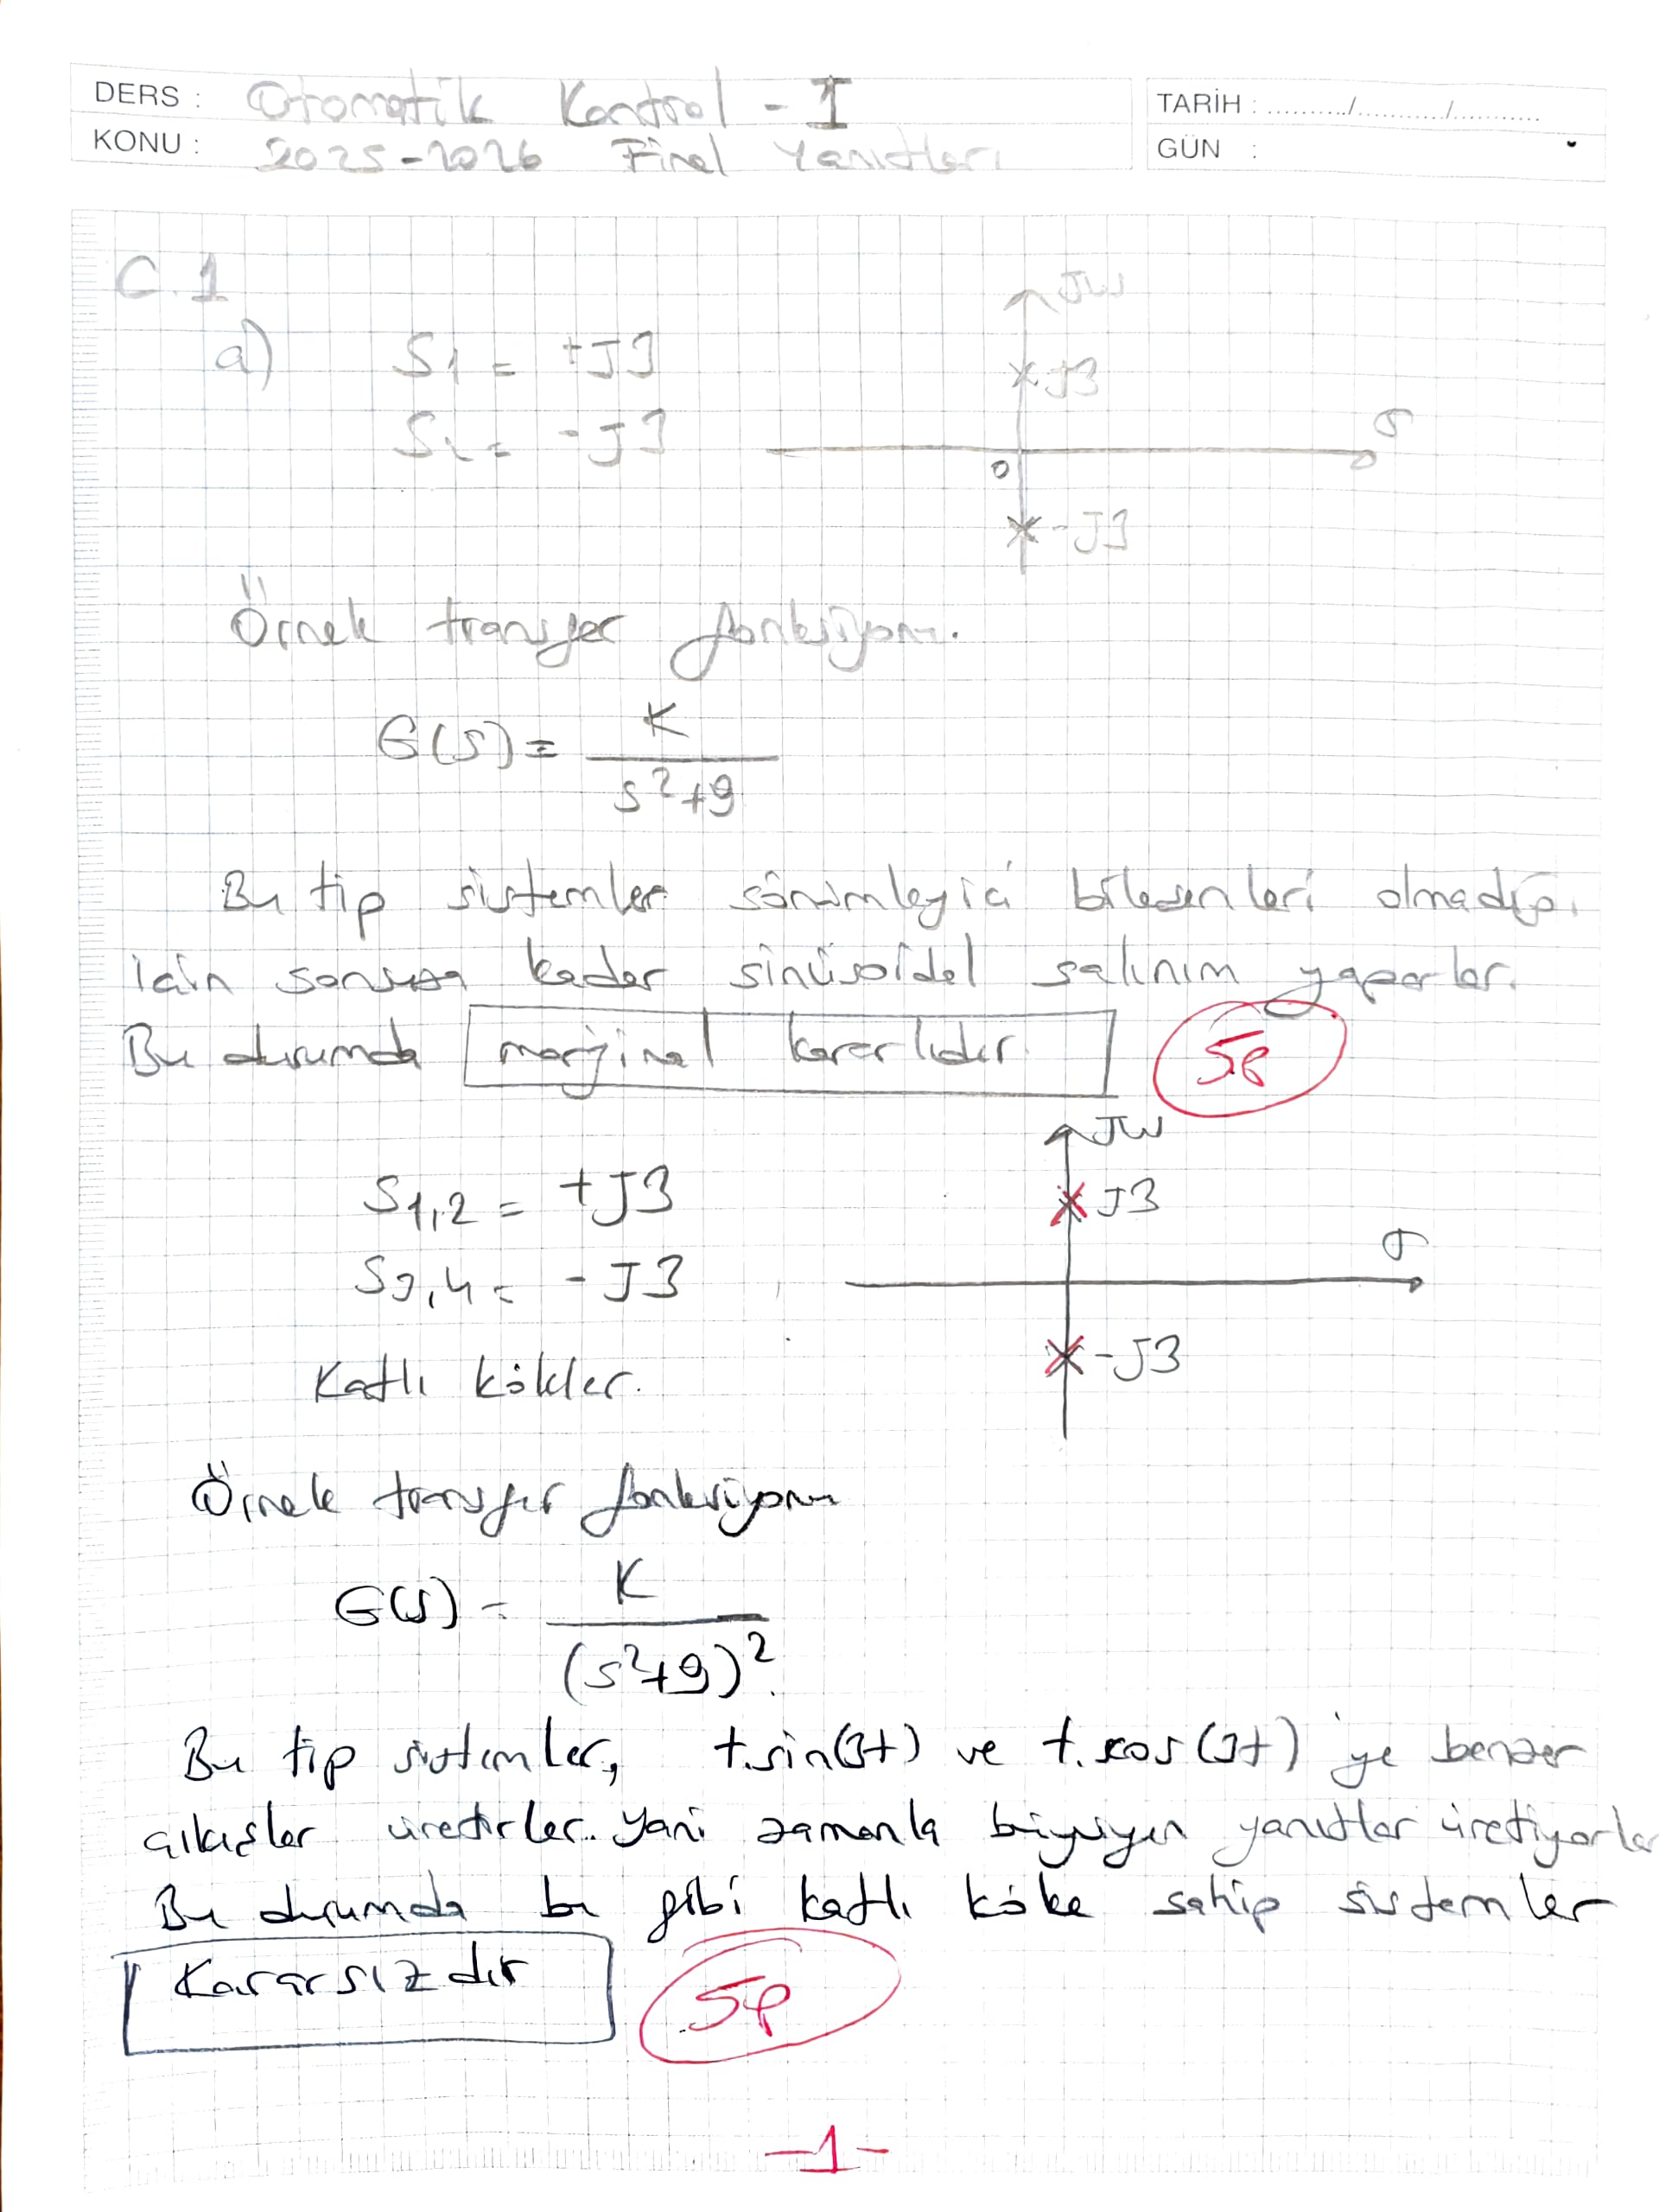 DERS : Otomatik Kontrol - I
KONU : 2025-2026 Final Yanıtları
TARİH : ........./.........../...........
GÜN :
C.1
a) S1 = +J3
S2 = -J3
JW
J3
σ
0
-J3
Örnek transfer fonksiyonu.
G(s) = K / s²+9
Bu tip sistemler sönümleyici bileşenleri olmadığı
için sonsuza kadar sinüsoidel salınım yaparlar.
Bu durumda marjinal kararlıdır. 5p
S1,2 = +J3
S3,4 = -J3
Katlı kökler.
JW
J3
σ
-J3
Örnek transfer fonksiyonu
G(s) = K / (s²+9)².
Bu tip sistemler, t.sin(3t) ve t.cos(3t) 'ye benzer
çıkışlar üretirler. Yani zamanla büyüyen yanıtlar üretiyorlar
Bu durumda bu gibi katlı köke sahip sistemler
Kararsızdır 5p
-1-